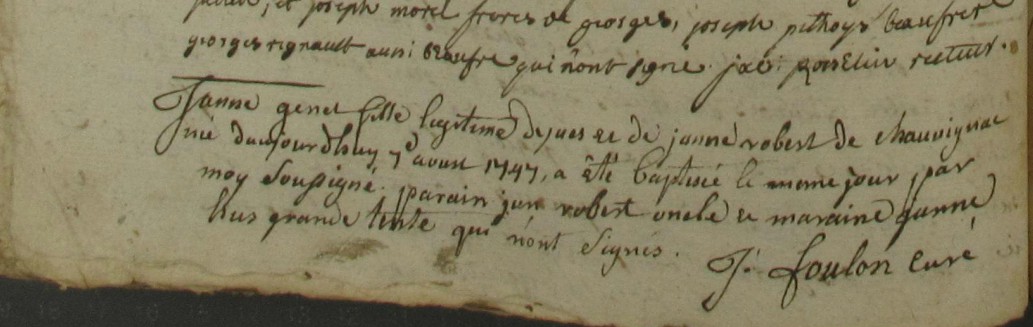 et joseph morel freres de georges, joseph pethoys beaufrere
georges regnault aussi beaufre qui n'ont signé. jac: Rosselin recteur.
Janne genet fille legitime d'yves et de janne robert de chauvignac
née daujourdhuy 7e avril 1747, a êté baptisée le meme jour par
moy soussigné. parain jan robert oncle et maraine janne
lus grande tente qui n'ont signés.
J. foulon curé